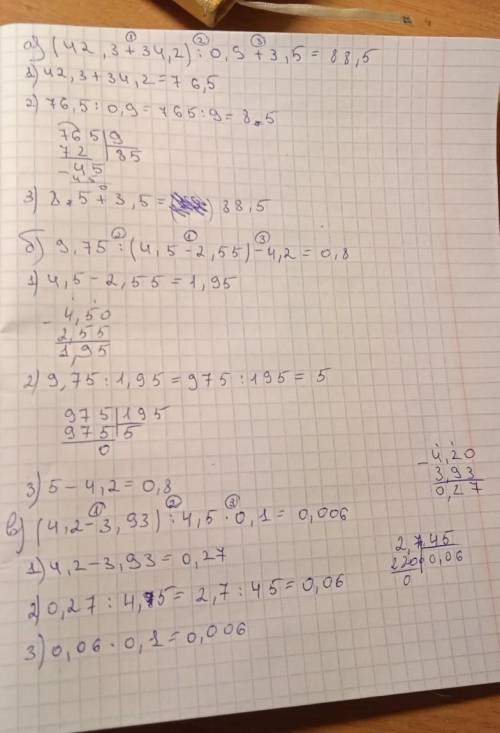 а) (42,3+34,2):0,9+3,5=88,5
1) 42,3+34,2=76,5
2) 76,5:0,9=765:9=8.5
765 9
72 85
- 45
45
0
3) 8.5+3,5= 88,5
б) 9,75:(4,5-2,55)-4,2=0,8
1) 4,5-2,55=1,95
- 4,50
2,55
1,95
2) 9,75:1,95=975:195=5
975 195
975 5
0
3) 5-4,2=0,8
- 4,20
3,93
0,27
в) (4,2-3,93):4,5·0,1=0,006
1) 4,2-3,93=0,27
2) 0,27:4,5=2,7:45=0,06
2,7 45
270 0,06
0
3) 0,06·0,1=0,006